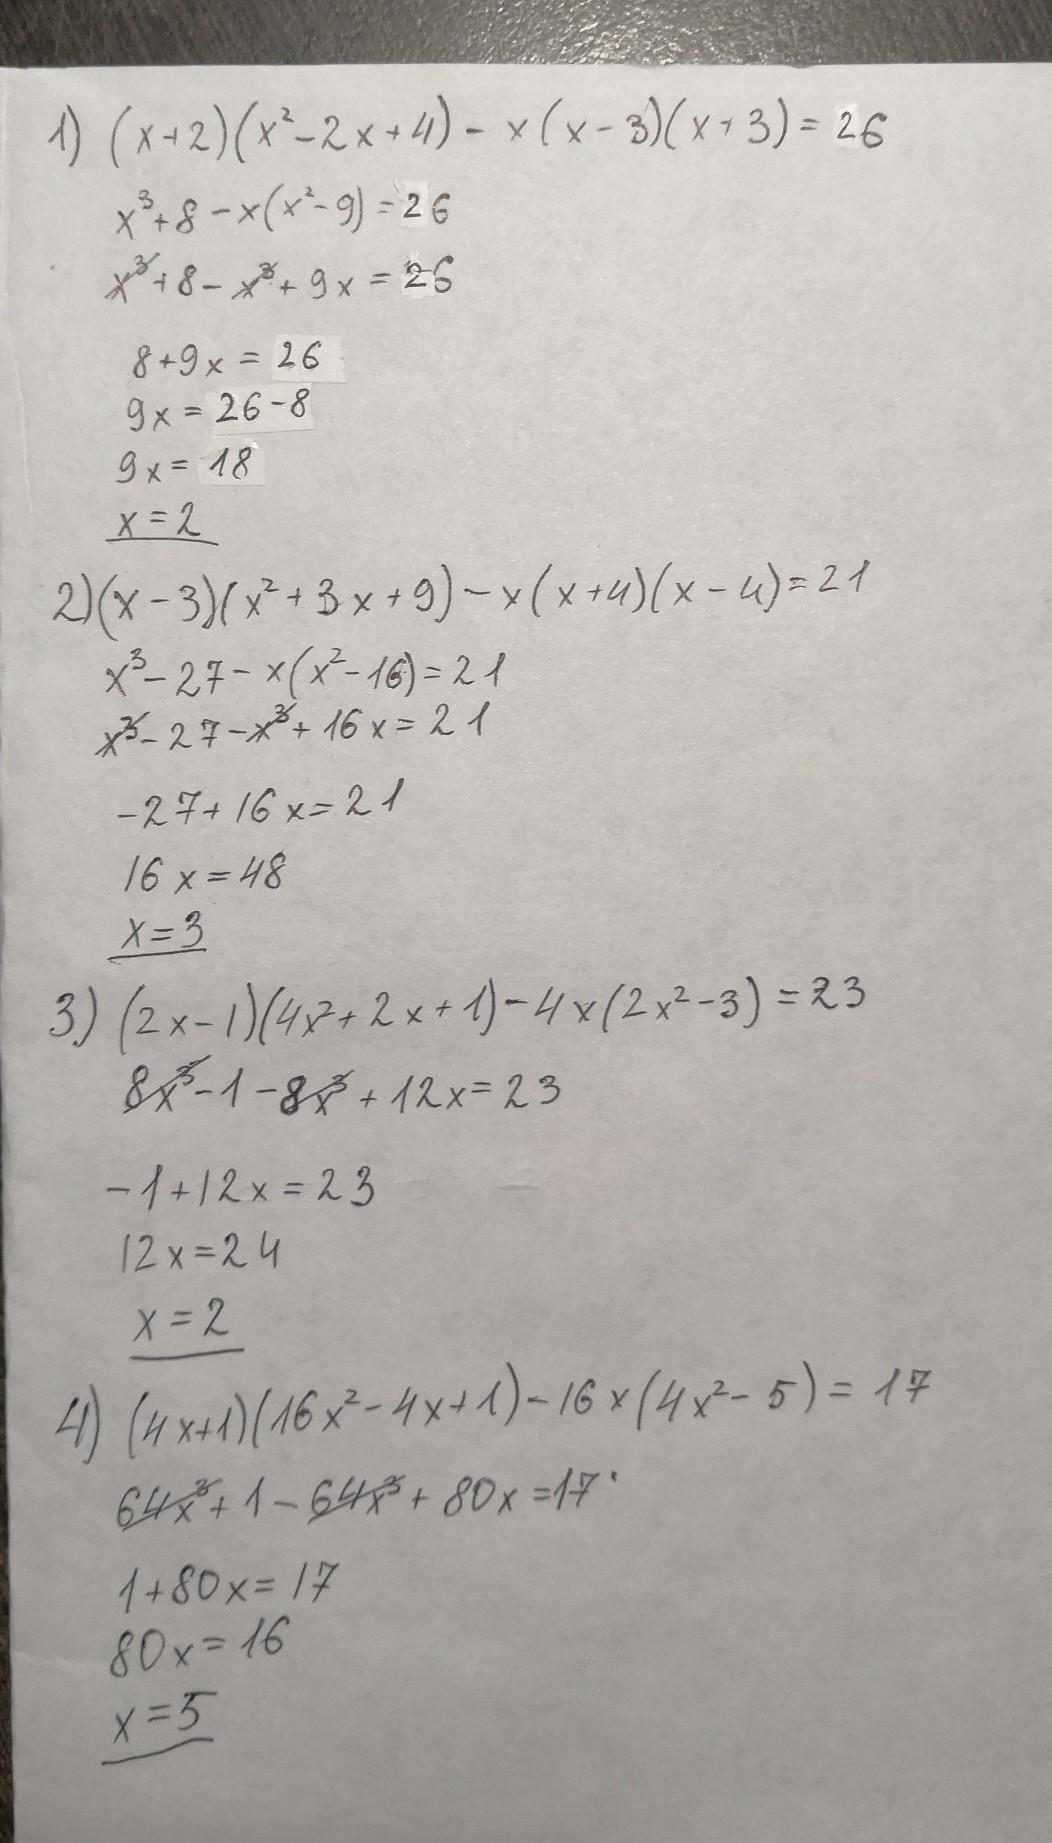 1) (x+2)(x²-2x+4)-x(x-3)(x+3)=26
x³+8-x(x²-9)=26
x³+8-x³+9x=26
8+9x=26
9x=26-8
9x=18
x=2
2)(x-3)(x²+3x+9)-x(x+4)(x-4)=21
x³-27-x(x²-16)=21
x³-27-x³+16x=21
-27+16x=21
16x=48
x=3
3.) (2x-1)(4x²+2x+1)-4x(2x²-3)=23
8x³-1-8x³+12x=23
-1+12x=23
12x=24
x=2
4) (4x+1)(16x²-4x+1)-16x(4x²-5)=17
64x³+1-64x³+80x=17
1+80x=17
80x=16
x=5